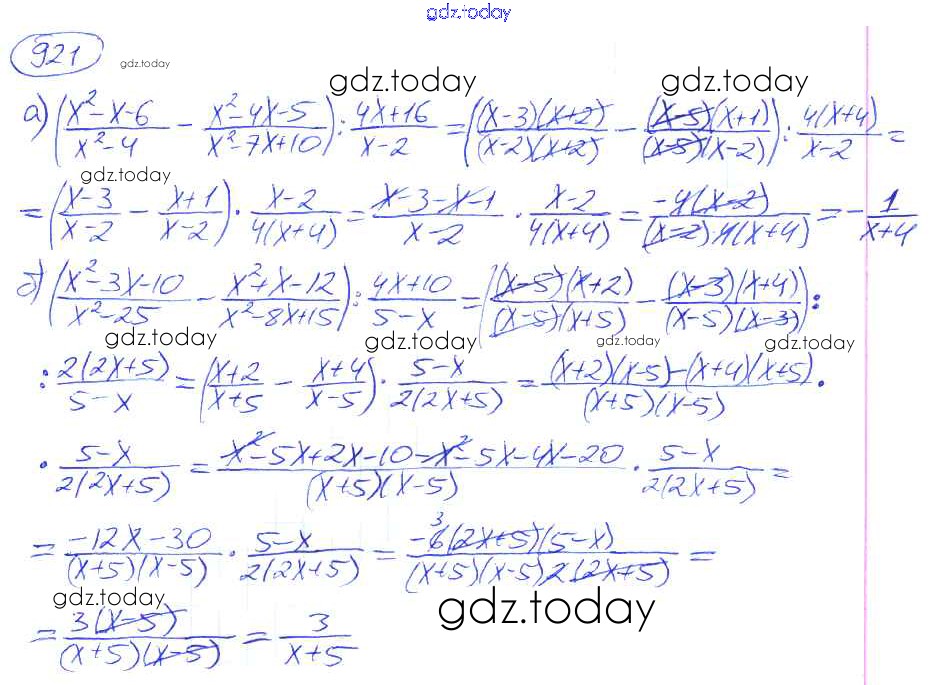 gdz.today
921
gdz.today
gdz.today gdz.today
а) ((x²-x-6)/(x²-4) - (x²-4x-5)/(x²-7x+10)) : (4x+16)/(x-2) = (((x-3)(x+2))/((x-2)(x+2)) - ((x-5)(x+1))/((x-5)(x-2))) : (4(x+4))/(x-2) =
gdz.today
= ((x-3)/(x-2) - (x+1)/(x-2)) · (x-2)/(4(x+4)) = (x-3-x-1)/(x-2) · (x-2)/(4(x+4)) = (-4(x-2))/((x-2)·4(x+4)) = -1/(x+4)
б) ((x²-3x-10)/(x²-25) - (x²+x-12)/(x²-8x+15)) : (4x+10)/(5-x) = (((x-5)(x+2))/((x-5)(x+5)) - ((x-3)(x+4))/((x-5)(x-3))) :
gdz.today gdz.today gdz.today
: (2(2x+5))/(5-x) = ((x+2)/(x+5) - (x+4)/(x-5)) · (5-x)/(2(2x+5)) = ((x+2)(x-5)-(x+4)(x+5))/((x+5)(x-5)) ·
· (5-x)/(2(2x+5)) = (x²-5x+2x-10-x²-5x-4x-20)/((x+5)(x-5)) · (5-x)/(2(2x+5)) =
= (-12x-30)/((x+5)(x-5)) · (5-x)/(2(2x+5)) = (-6 3 (2x+5)(5-x))/((x+5)(x-5)2(2x+5)) =
gdz.today gdz.today
= (3(x-5))/((x+5)(x-5)) = 3/(x+5)